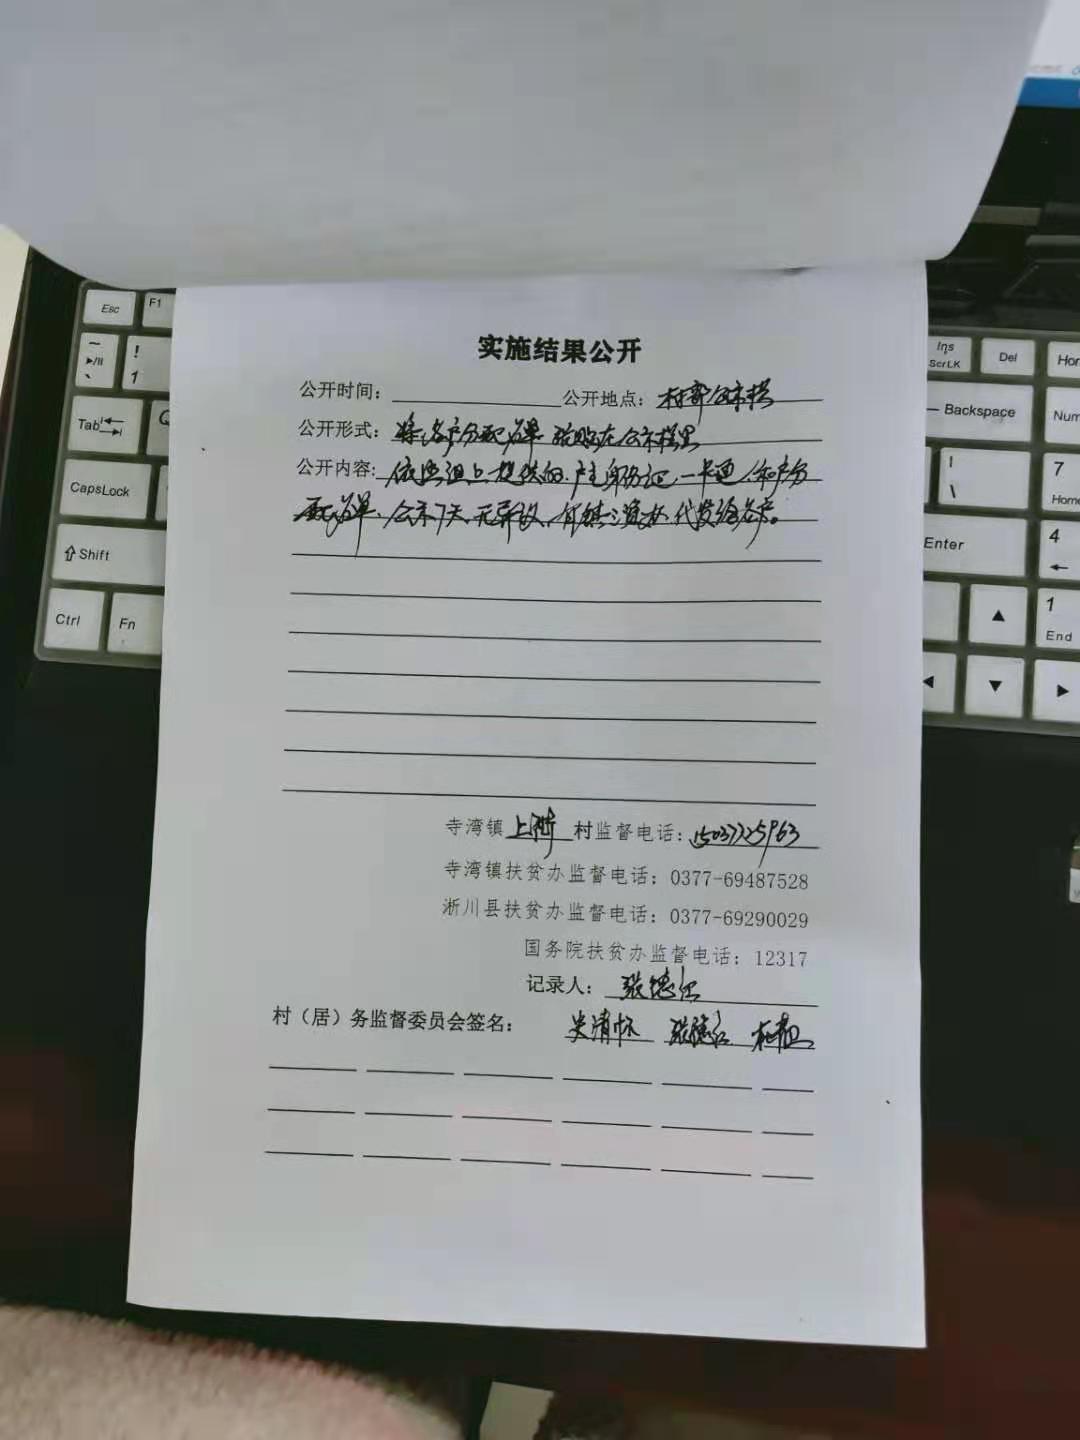 实施结果公开
公开时间： 公开地点：村部公示栏
公开形式：将各户分配名单张贴在公示栏里
公开内容：依照组上提供的户主身份证、一卡通、和户分
配名单、公示7天、无异议、由镇三资办代发给各户。
寺湾镇上 村监督电话：15037725963
寺湾镇扶贫办监督电话：0377-69487528
淅川县扶贫办监督电话：0377-69290029
国务院扶贫办监督电话：12317
记录人：张德
村（居）务监督委员会签名： 清 张德
Esc
F1
!
1
Tab
Q
CapsLock
Shift
Ctrl
Fn
Ins
ScrLK
Del
Hom
Backspace
Num
|
\
7
Home
Enter
4
1
End